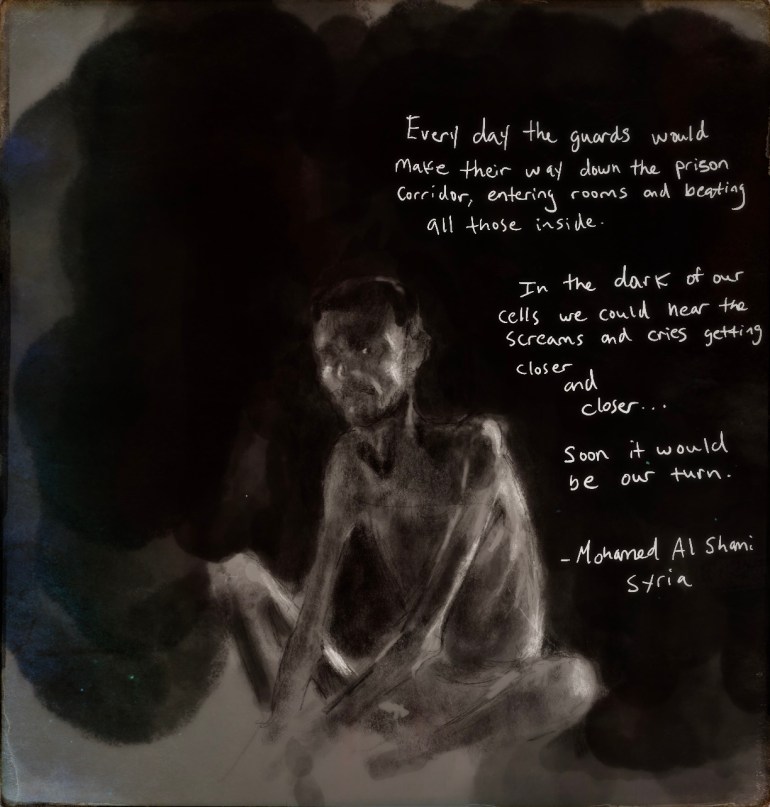 Every day the guards would
make their way down the prison
corridor, entering rooms and beating
all those inside.
In the dark of our
cells we could hear the
screams and cries getting
closer
and
closer...
Soon it would
be our turn.
-Mohamed Al Shami
Syria